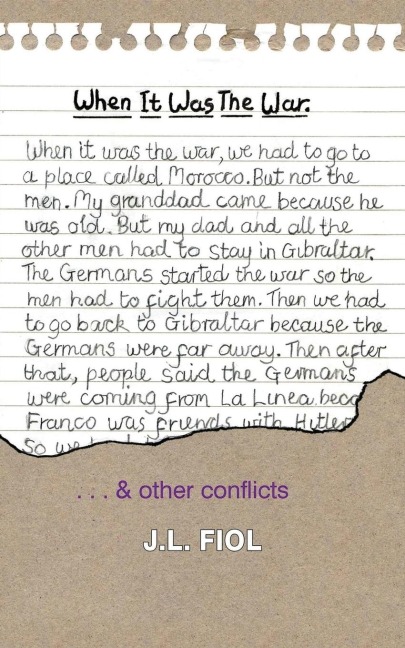 When It Was The War.
When it was the war, we had to go to
a place called Morocco. But not the
men. My granddad came because he
was old. But my dad and all the
other men had to stay in Gibraltar.
The Germans started the war so the
men had to fight them. Then we had
to go back to Gibraltar because the
Germans were far away. Then after
that, people said the Germans
were coming from La Linea beca
Franco was friends with Hitler
So we
. . . & other conflicts
J.L. FIOL